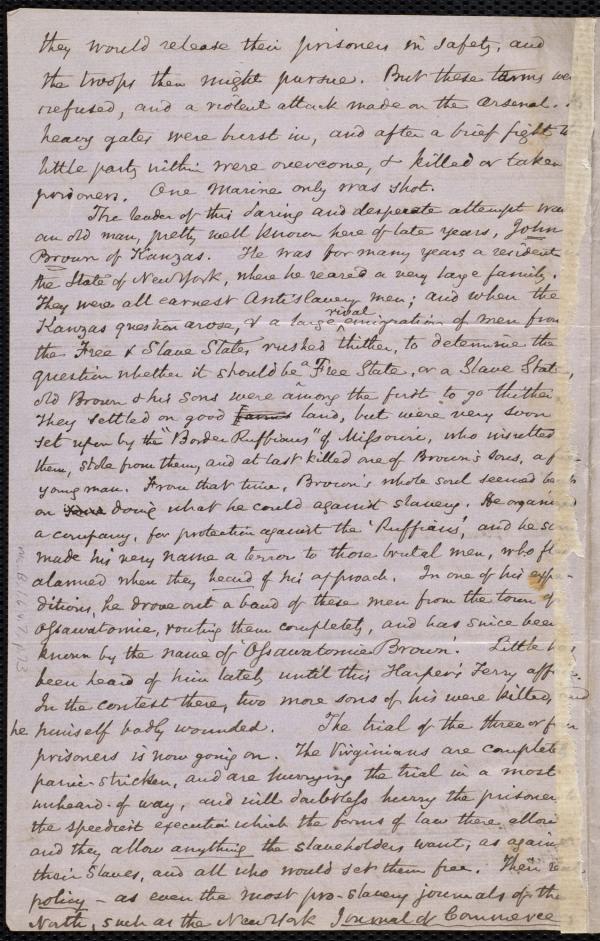 they would release their prisoners in safety, and
the troops then might pursue. But these terms were
refused, and a violent attack made on the Arsenal.
heavy gates were burst in, and after a brief fight
little party within were overcome, & killed or taken
prisoners. One marine only was shot.
The leader of this daring and desperate attempt was
an old man, pretty well known here of late years, John
Brown of Kanzas. He was for many years a resident
the State of New York, where he reared a very large family.
They were all earnest Antislavery men; and when the
rival
Kanzas question arose, & a large emigration of men from
the Free & Slave States rushed thither, to determine the
question whether it should be a Free State, or a Slave State,
old Brown & his sons were among the first to go thither.
They settled on good farms land, but were very soon
set upon by the "Border Ruffians" of Missouri, who insulted
them, stole from them, and at last killed one of Brown's sons, a
young man. From that time, Brown's whole soul seemed
on doing what he could against slavery. He organized
a company, for protection against the 'Ruffians', and he
made his very name a terror to those brutal men, who
alarmed when they heard of his approach. In one of his expe-
ditions, he drove out a band of these men from the town of
Ossawatomie, routing them completely, and has since been
known by the name of 'Ossawatomie Brown'. Little
been heard of him lately until this Harper's Ferry
In the contest there, two more sons of his were killed, and
he himself badly wounded. The trial of the three or four
prisoners is now going on. The Virginians are completely
panic-stricken, and are hurrying the trial in a most
unheard-of way, and will doubtless hurry the prisoner
the speediest execution which the forms of law there allow
and they allow anything the slaveholders want, as against
their Slaves, and all who would set them free. Their
policy - as even the most pro-slavery journals of the
North, such as the New York Journal of Commerce